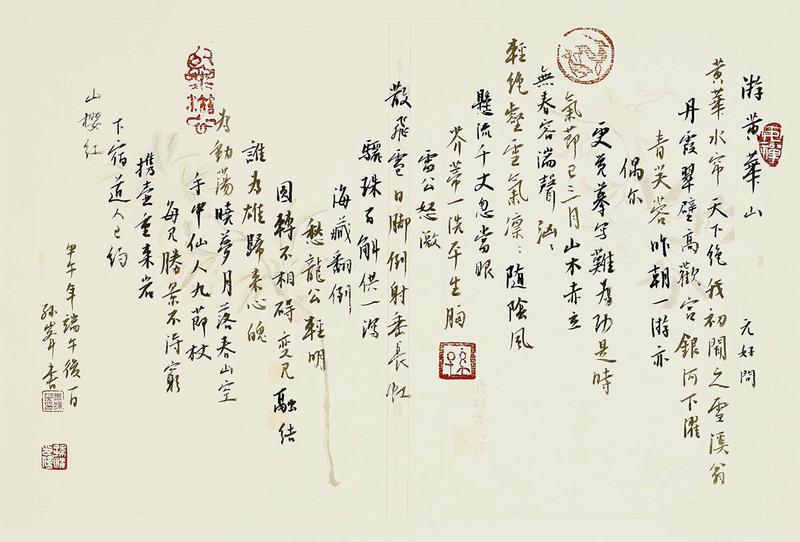 游黄華山
元好問
黄華水帘天下絶我初聞之雪溪翁
丹霞翠壁高歡宫銀河下濯
青芙蓉昨朝一游亦
偶尔
更覚摹写難為功是時
氣節已三月山木赤立
無春容湍聲汹〻
輕絶壑雪氣凛〻随陰風
懸流千丈忽當眼
芥蒂一洗平生胸
雷公怒激
散飛雹日脚倒射垂長虹
驪珠百斛供一瀉
海藏翻倒
愁龍公輕明
圆轉不相碍変見融结
誰為雄歸来心魄
為動蕩曉夢月落春山空
手中仙人九節杖
每見勝景不得窮
携壺重来岩
下宿道人已约
山櫻红
甲午年端午後一日
孫 書